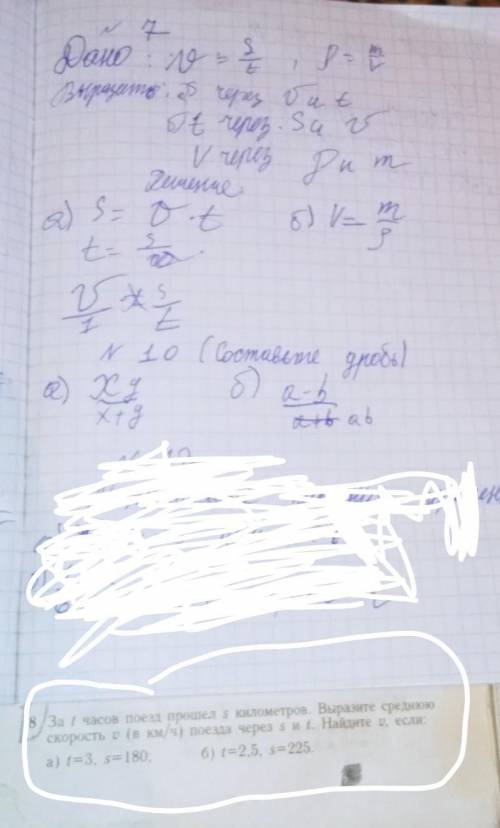 7
Дано: v = s/t, ρ = m/V
Выразить: S через v и t
б t через S и v
V через ρ и m
Решение.
а) S = v · t б) V = m/ρ
t = s/
v/1 s/t
N 10 (Составьте дробь)
а) xy/x+y б) a-b/a+b ab
8 За t часов поезд прошел s километров. Выразите среднюю
скорость v (в км/ч) поезда через s и t. Найдите v, если:
а) t=3, s=180; б) t=2,5, s=225.